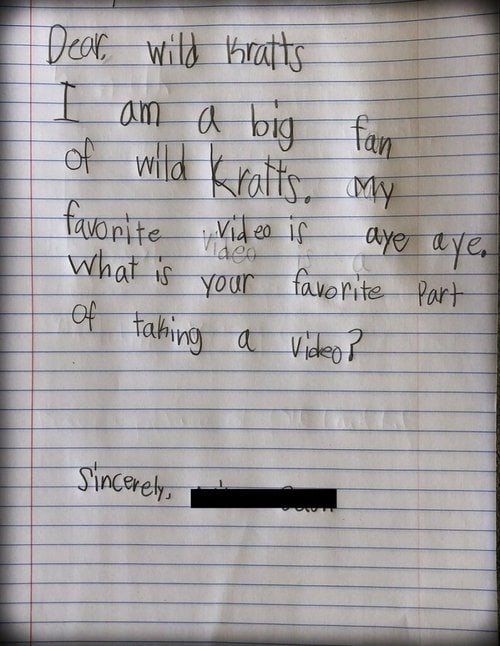 Dear, wild kratts
I am a big fan
of wild Kratts. My
favorite video is aye aye.
What is your favorite Part
of taking a video?
Sincerely,